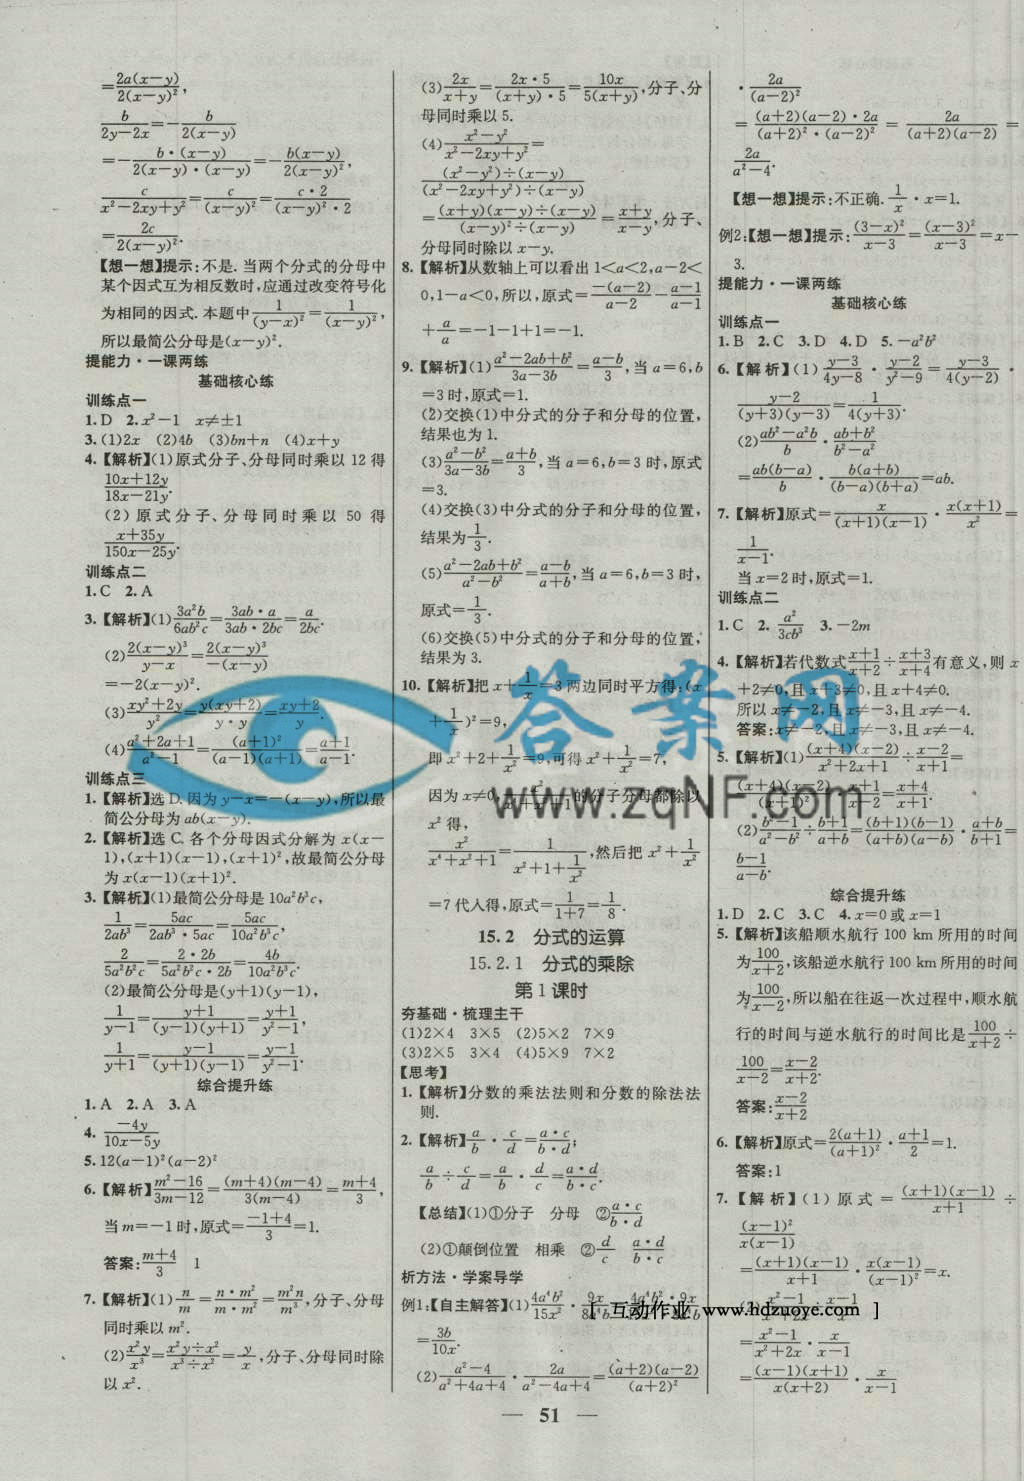 =2a(x-y)/2(x-y)²,
b/(2y-2x)=-b/2(x-y)
=-b·(x-y)/2(x-y)·(x-y)=-b(x-y)/2(x-y)²,
c/(x²-2xy+y²)=c/(x-y)²=c·2/(x-y)²·2
=2c/2(x-y)².
【想一想】提示:不是.当两个分式的分母中
某个因式互为相反数时,应通过改变符号化
为相同的因式.本题中1/(y-x)²=1/(x-y)²,
所以最简公分母是(x-y)².
提能力·一课两练
基础核心练
训练点一
1.D 2.x²-1 x≠±1
3.(1)2x (2)4b (3)bn+n (4)x+y
4.【解析】(1)原式分子、分母同时乘以12得
(10x+12y)/(18x-21y).
(2)原式分子、分母同时乘以50得
(x+35y)/(150x-25y).
训练点二
1.C 2.A
3.【解析】(1)3a²b/6ab²c=3ab·a/3ab·2bc=a/2bc.
(2)2(x-y)³/(y-x)=2(x-y)³/-(x-y)
=-2(x-y)².
(3)(xy²+2y)/y²=y(xy+2)/y·y=(xy+2)/y.
(4)(a²+2a+1)/(a²-1)=(a+1)²/(a-1)(a+1)=(a+1)/(a-1).
训练点三
1.【解析】选D.因为y-x=-(x-y),所以最
简公分母为ab(x-y).
2.【解析】选C.各个分母因式分解为x(x-
1),(x+1)(x-1),(x+1)²,故最简公分母
为x(x-1)(x+1)².
3.【解析】(1)最简公分母是10a²b³c,
1/2ab³=5ac/2ab³·5ac=5ac/10a²b³c,
2/5a²b²c=2·2b/5a²b²c·2b=4b/10a²b³c.
(2)最简公分母是(y+1)(y-1),
1/(y-1)=(y+1)/(y-1)(y+1)=(y+1)/(y²-1),
1/(y+1)=(y-1)/(y+1)(y-1)=(y-1)/(y²-1).
综合提升练
1.A 2.A 3.A
4.-4y/(10x-5y)
5.12(a-1)²(a-2)²
6.【解析】(m²-16)/(3m-12)=(m+4)(m-4)/3(m-4)=(m+4)/3,
当m=-1时,原式=(-1+4)/3=1.
答案:(m+4)/3 1
7.【解析】(1)n/m=n·m²/m·m²=m²n/m³,分子、分母
同时乘以m².
(2)x²y/x³=x²y÷x²/x³÷x²=y/x,分子、分母同时除
以x².
(3)2x/(x+y)=2x·5/(x+y)·5=10x/5(x+y),分子、分
母同时乘以5.
(4)(x²-y²)/(x²-2xy+y²)=
(x²-y²)÷(x-y)/(x²-2xy+y²)÷(x-y)
=(x+y)(x-y)÷(x-y)/(x-y)²÷(x-y)=(x+y)/(x-y),分子、
分母同时除以x-y.
8.【解析】从数轴上可以看出1<a<2,a-2<
0,1-a<0,所以,原式=-(a-2)/(a-2)-(a-1)/(a-1)
+a/a=-1-1+1=-1.
9.【解析】(1)(a²-2ab+b²)/(3a-3b)=(a-b)/3,当a=6,b
=3时,原式=1.
(2)交换(1)中分式的分子和分母的位置,
结果也为1.
(3)(a²-b²)/(3a-3b)=(a+b)/3,当a=6,b=3时,原式
=3.
(4)交换(3)中分式的分子和分母的位置,
结果为1/3.
(5)(a²-2ab+b²)/(a²-b²)=(a-b)/(a+b),当a=6,b=3时,
原式=1/3.
(6)交换(5)中分式的分子和分母的位置,
结果为3.
10.【解析】把x+1/x=3两边同时平方得:(x
+1/x)²=9,
即x²+2+1/x²=9,可得x²+1/x²=7,
因为x≠0,x²/(x⁴+x²+1)的分子分母都除以
x²得,
x²/(x⁴+x²+1)=1/(x²+1+1/x²),然后把x²+1/x²
=7代入得,原式=1/(1+7)=1/8.
15.2 分式的运算
15.2.1 分式的乘除
第1课时
夯基础·梳理主干
(1)2×4 3×5 (2)5×2 7×9
(3)2×5 3×4 (4)5×9 7×2
【思考】
1.【解析】分数的乘法法则和分数的除法法
则.
2.【解析】a/b·c/d=a·c/b·d;
a/b÷c/d=a/b·d/c=a·d/b·c.
【总结】(1)①分子 分母 ②a·c/b·d
(2)①颠倒位置 相乘 ②d/c a·d/b·c
析方法·学案导学
例1:【自主解答】(1)4a⁴b²/15x²·9x/8a⁴b=4a⁴b²·9x/15x²·8a⁴b
=3b/10x.
(2)(a²-4)/(a²+4a+4)·2a/(a²-4a+4)=(a+2)(a-2)/(a+2)²
·2a/(a-2)²
=(a+2)(a-2)·2a/(a+2)²·(a-2)²=2a/(a+2)(a-2)=
2a/(a²-4).
【想一想】提示:不正确.1/x·x=1.
例2:【想一想】提示:(3-x)²/(x-3)=(x-3)²/(x-3)=x-
3.
提能力·一课两练
基础核心练
训练点一
1.B 2.C 3.D 4.D 5.-a²b²
6.【解析】(1)(y-3)/(4y-8)·(y-2)/(y²-9)=(y-3)/4(y-2)·
(y-2)/(y+3)(y-3)=1/4(y+3).
(2)(ab²-a²b)/b·(ab+b²)/(b²-a²)
=ab(b-a)/b·b(a+b)/(b-a)(b+a)=ab.
7.【解析】原式=x/(x+1)(x-1)·x(x+1)/x²=
1/(x-1).
当x=2时,原式=1.
训练点二
1.C 2.a²/3cb³ 3.-2m
4.【解析】若代数式(x+1)/(x+2)÷(x+3)/(x+4)有意义,则x
+2≠0,且x+3≠0,且x+4≠0.
所以x≠-2,且x≠-3,且x≠-4.
答案:x≠-2,且x≠-3,且x≠-4.
5.【解析】(1)(x+4)(x-2)/(x²+2x+1)÷(x-2)/(x+1)
=(x+4)(x-2)/(x+1)²·(x+1)/(x-2)=(x+4)/(x+1).
(2)(b²-1)/(a²-b²)÷(b+1)/(a+b)=(b+1)(b-1)/(a+b)(a-b)·(a+b)/(b+1)=
(b-1)/(a-b).
综合提升练
1.D 2.C 3.C 4.x=0或x=1
5.【解析】该船顺水航行100 km所用的时间
为100/(x+2),该船逆水航行100 km所用的时间
为100/(x-2),所以船在往返一次过程中,顺水航
行的时间与逆水航行的时间比是100/(x+2)÷
100/(x-2)=(x-2)/(x+2).
答案:(x-2)/(x+2)
6.【解析】原式=2(a+1)/(a+1)²·(a+1)/2=1.
答案:1
7.【解析】(1)原式=(x+1)(x-1)/(x+1)÷
(x-1)²/x(x-1)
=(x+1)(x-1)/(x+1)·x(x-1)/(x-1)²=x.
(2)(x²-1)/(x²+2x)·x/(x-1)
=(x-1)(x+1)/x(x+2)·x/(x-1)
— 51 —
答案网
www.zqNF.com
[ 互动作业 www.hdzuoye.com ]